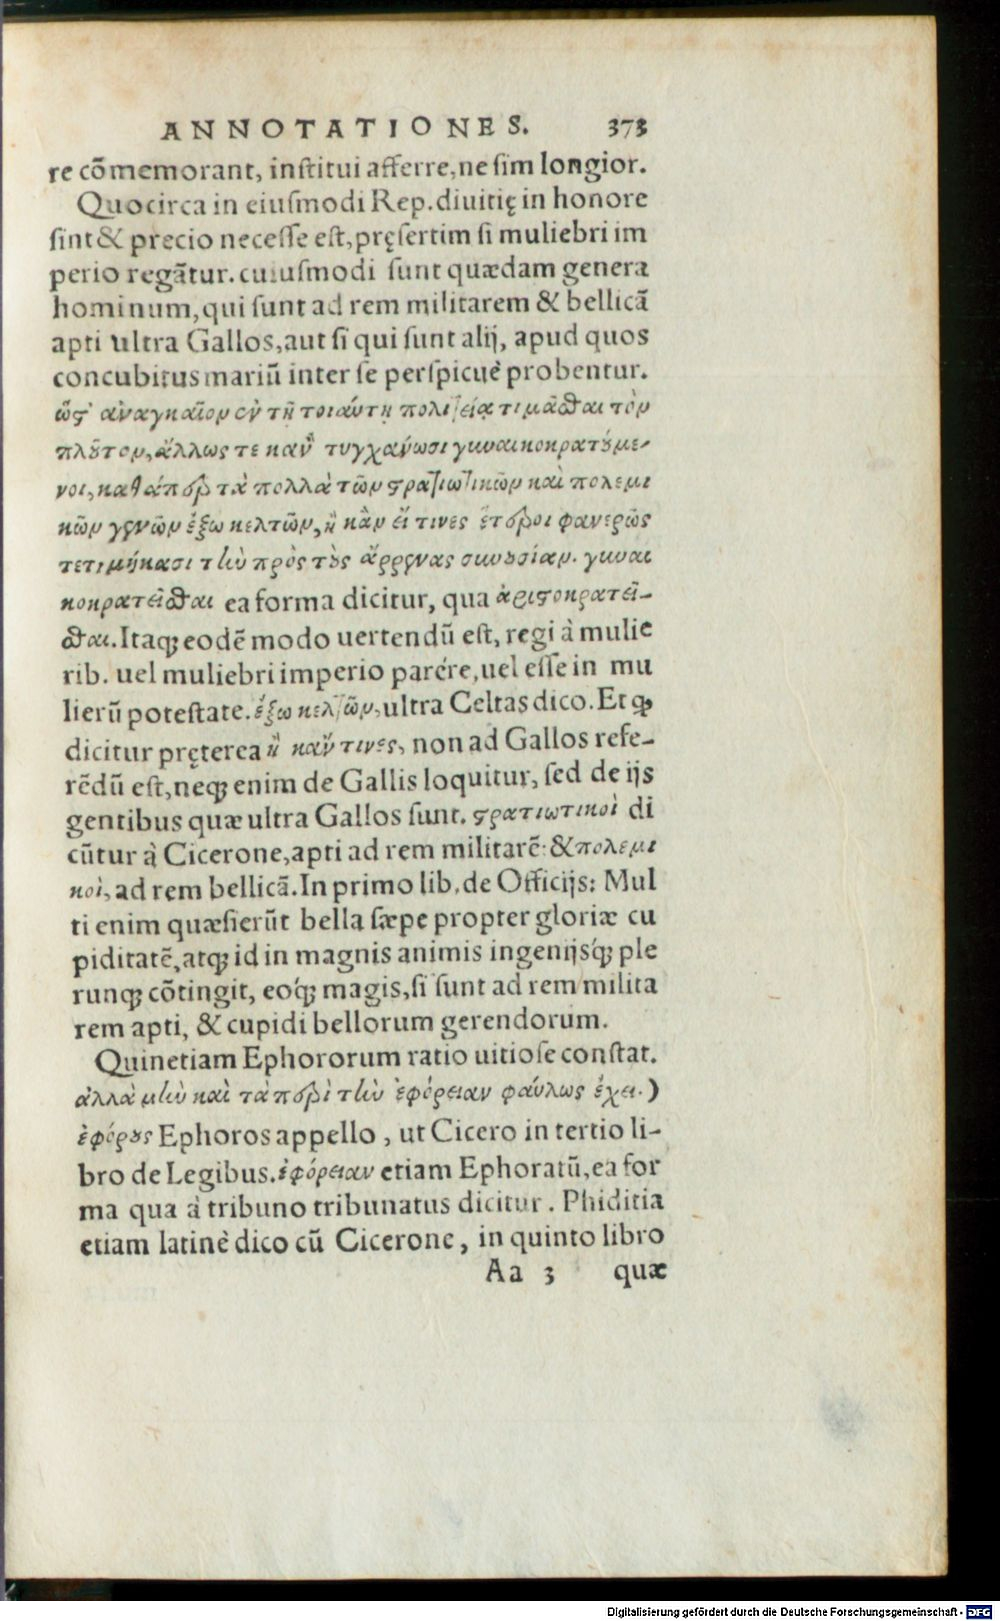 ANNOTATIONES. 373
re cõmemorant, institui afferre, ne sim longior.
Quocirca in eiusmodi Rep. diuitię in honore
sint & precio necesse est, pręsertim si muliebri im
perio regãtur. cuiusmodi sunt quædam genera
hominum, qui sunt ad rem militarem & bellicã
apti ultra Gallos, aut si qui sunt alij, apud quos
concubitus mariũ inter se perspicuè probentur.
ὥστ' ἀναγκαῖον ἐν τῇ τοιαύτῃ πολιτείᾳ τιμᾶσθαι τὸν
πλοῦτον, ἄλλως τε κἂν τυγχάνωσι γυναικοκρατούμε-
νοι, καθάπερ τὰ πολλὰ τῶν στρατιωτικῶν καὶ πολεμι
κῶν γενῶν ἔξω κελτῶν, ἢ κἂν εἴ τινες ἕτεροι φανερῶς
τετιμήκασι τὴν πρὸς τοὺς ἄρρενας συνουσίαν. γυναι
κοκρατεῖσθαι ea forma dicitur, qua ἀριστοκρατεῖ-
σθαι. Itaq; eodẽ modo uertendũ est, regi à mulie
rib. uel muliebri imperio parére, uel esse in mu
lierũ potestate. ἔξω κελτῶν, ultra Celtas dico. Et q̃
dicitur pręterea ἢ κἄν τινες, non ad Gallos refe-
rẽdũ est, neq; enim de Gallis loquitur, sed de ijs
gentibus quæ ultra Gallos sunt. στρατιωτικοὶ di
cũtur à Cicerone, apti ad rem militarẽ: & πολεμι
κοὶ, ad rem bellicã. In primo lib. de Officijs: Mul
ti enim quæsierũt bella sæpe propter gloriæ cu
piditatẽ, atq; id in magnis animis ingenijsq́; ple
runq; cõtingit, eoq́; magis, si sunt ad rem milita
rem apti, & cupidi bellorum gerendorum.
Quinetiam Ephororum ratio uitiose constat.
ἀλλὰ μὴν καὶ τὰ περὶ τὴν ἐφόρειαν φαύλως ἔχει.)
ἐφόρους Ephoros appello, ut Cicero in tertio li-
bro de Legibus. ἐφόρειαν etiam Ephoratũ, ea for
ma qua à tribuno tribunatus dicitur. Phiditia
etiam latinè dico cũ Cicerone, in quinto libro
Aa 3 quæ
Digitalisierung gefördert durch die Deutsche Forschungsgemeinschaft - DFG